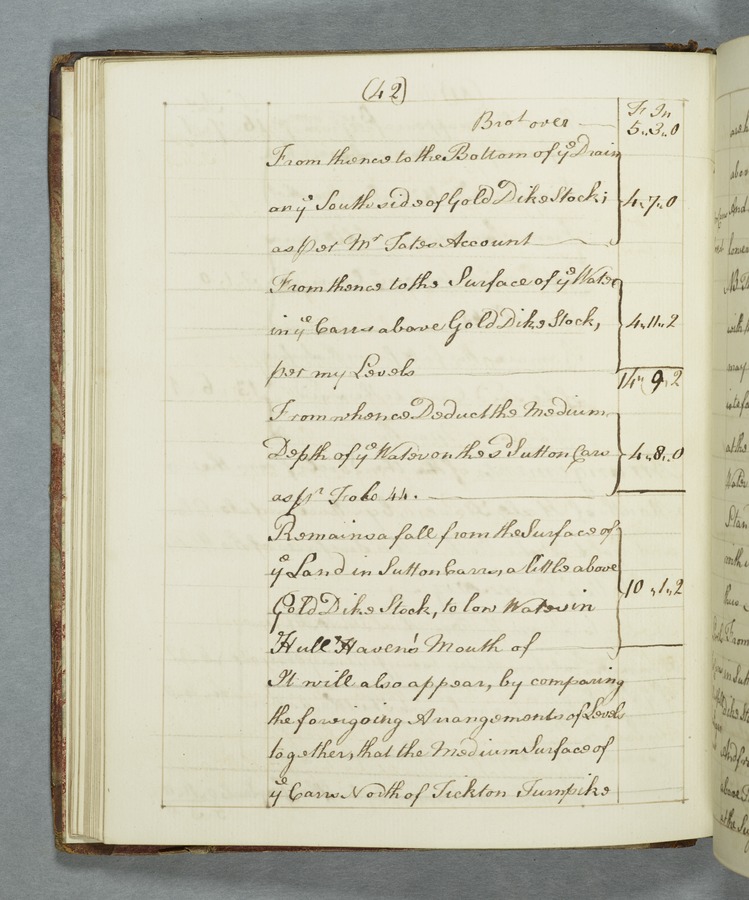 (42)
F In
Brot over 5,,3,,0
From thence to the Bottom of ye Drain
on ye South side of Gold Dike Stock; 4,,7,,0
as per Mr Tates Account
From thence to the Surface of ye Water
in ye Carrs above Gold Dike Stock, 4,,11,,2
per my Levels
14,,9,,2
From whence Deduct the Medium
Depth of ye Water on the sd Sutton Carr 4,,8,,0
as pr Folio 44.
Remains a fall from the Surface of
ye Land in Sutton Carrs, a little above
Gold Dike Stock, to low Water in 10,,1,,2
Hull Haven's Mouth of
It will also appear, by comparing
the foregoing Arrangements of Levels
together, that the Medium Surface of
ye Carrs North of Tickton Turnpike